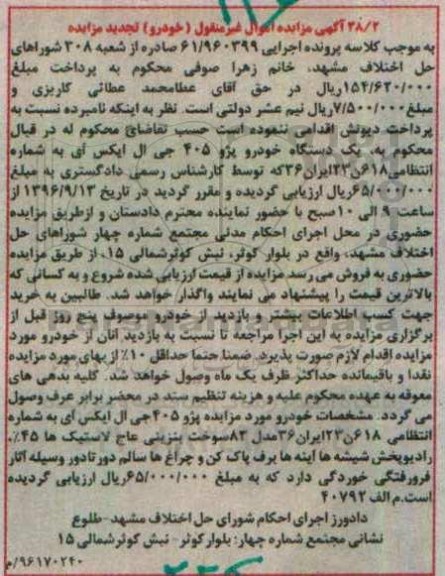 ۳۸/۲ آگهی مزایده اموال غیرمنقول (خودرو) تجدید مزایده
به موجب کلاسه پرونده اجرایی ۶۱/۹۶۰۳۹۹ صادره از شعبه ۳۰۸ شوراهای
حل اختلاف مشهد، خانم زهرا صوفی محکوم به پرداخت مبلغ
۱۵۴/۶۲۰/۰۰۰ریال در حق آقای عطامحمد عطائی کاریزی و
مبلغ۷/۵۰۰/۰۰۰ریال نیم عشر دولتی است. نظر به اینکه نامبرده نسبت به
پرداخت دیونش اقدامی ننموده است حسب تقاضای محکوم له در قبال
محکوم به یک دستگاه خودرو پژو ۴۰۵ جی ال ایکس آی به شماره
انتظامی۶۱۸ن۲۳ایران۳۶که توسط کارشناس رسمی دادگستری به مبلغ
۶۵/۰۰۰/۰۰۰ریال ارزیابی گردیده و مقرر گردید در تاریخ ۱۳۹۶/۹/۱۳ از
ساعت ۹ الی ۱۰صبح با حضور نماینده محترم دادستان و ازطریق مزایده
حضوری در محل اجرای احکام مدنی مجتمع شماره چهار شوراهای حل
اختلاف مشهد، واقع در بلوار کوثر، نبش کوثرشمالی ۱۵، از طریق مزایده
حضوری به فروش می رسد مزایده از قیمت ارزیابی شده شروع و به کسانی که
بالاترین قیمت را پیشنهاد می نمایند واگذار خواهد شد. طالبین به خرید
جهت کسب اطلاعات بیشتر و بازدید از خودرو موصوف پنج روز قبل از
برگزاری مزایده به این اجرا مراجعه تا نسبت به بازدید آنان از خودرو مورد
مزایده اقدام لازم صورت پذیرد. ضمنا حتما حداقل ۱۰٪ از بهای مورد مزایده
نقدا و باقیمانده حداکثر ظرف یک ماه وصول خواهد شد. کلیه بدهی های
معوقه به عهده محکوم علیه و هزینه تنظیم سند در محضر برابر عرف وصول
می گردد. مشخصات خودرو مورد مزایده پژو ۴۰۵جی ال ایکس آی به شماره
انتظامی ۶۱۸ن۲۳ایران۳۶مدل ۸۳سوخت بنزینی عاج لاستیک ها ۴۵٪.
رادیوپخش شیشه ها آینه ها برف پاک کن و چراغ ها سالم دورتادور وسیله آثار
فرورفتگی خوردگی دارد که به مبلغ ۶۵/۰۰۰/۰۰۰ریال ارزیابی گردیده
است.م الف ۴۰۷۹۲
دادورز اجرای احکام شورای حل اختلاف مشهد-طلوع
نشانی مجتمع شماره چهار: بلوار کوثر- نبش کوثرشمالی ۱۵
۹۶۱۷۰۲۴۰/م